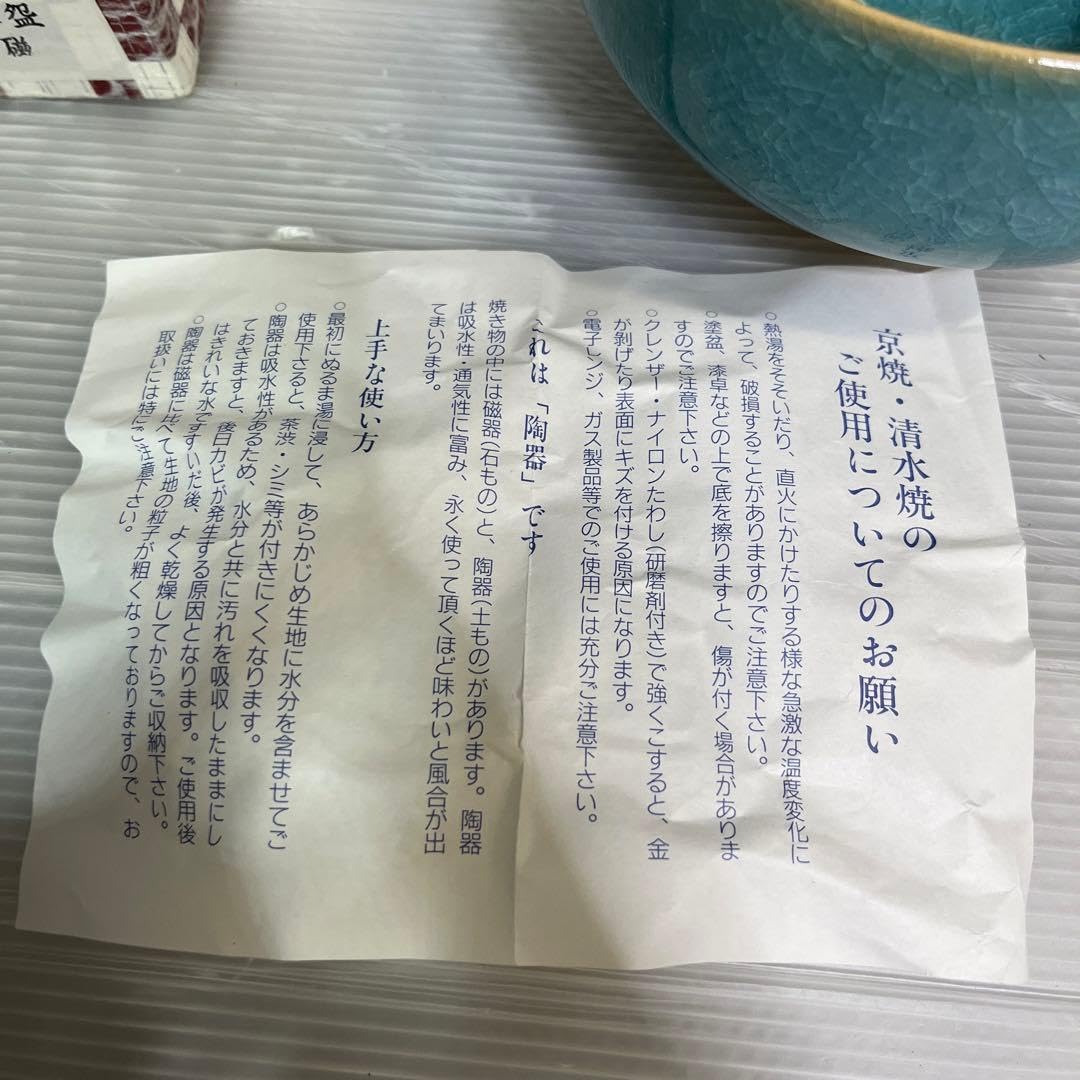 盌
磁
京焼・清水焼の
ご使用についてのお願い
○熱湯をそそいだり、直火にかけたりする様な急激な温度変化に
よって、破損することがありますのでご注意下さい。
○塗盆、漆卓などの上で底を擦りますと、傷が付く場合がありま
すのでご注意下さい。
○クレンザー・ナイロンたわし(研磨剤付き)で強くこすると、金
が剝げたり表面にキズを付ける原因になります。
○電子レンジ、ガス製品等でのご使用には充分ご注意下さい。
これは「陶器」です
焼き物の中には磁器(石もの)と、陶器(土もの)があります。陶器
は吸水性・通気性に富み、永く使って頂くほど味わいと風合が出
てまいります。
上手な使い方
○最初にぬるま湯に浸して、あらかじめ生地に水分を含ませてご
使用下さると、茶渋・シミ等が付きにくくなります。
○陶器は吸水性があるため、水分と共に汚れを吸収したままにし
ておきますと、後日カビが発生する原因となります。ご使用後
はきれいな水ですすいだ後、よく乾燥してからご収納下さい。
○陶器は磁器に比べて生地の粒子が粗くなっておりますので、お
取扱いには特にご注意下さい。